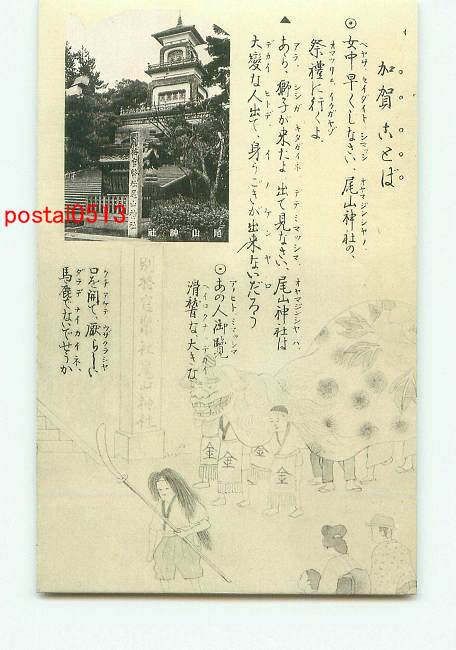 加賀ことば
ベヤサ、セイダイト シマッシ オヤマジンジャノ、
⦿女中早くしなさい、尾山神社の、
オマツリェ、イクガヤゾ
祭禮に行くよ、
アラ、シシガ キタガイネ デテミマッシマ、オヤマジンジャハ
▲あら、獅子が来たよ 出て見なさい、尾山神社は
デカイ ヒトデ イノケンヤロ
大變な人出て、身うごきが出来ないだろう
アノヒト ミマッシマ
⦿あの人御覧
ヘイコクナ デカイ
滑稽な大きな
クチ アケテ ウザクラシヤ
口を開て、厭らしい
ダラデナイカイネ、
馬鹿でないでせうか
尾山神社
別格官幣社尾山神社
別格官幣社尾山神社
金
金
金
postal0513